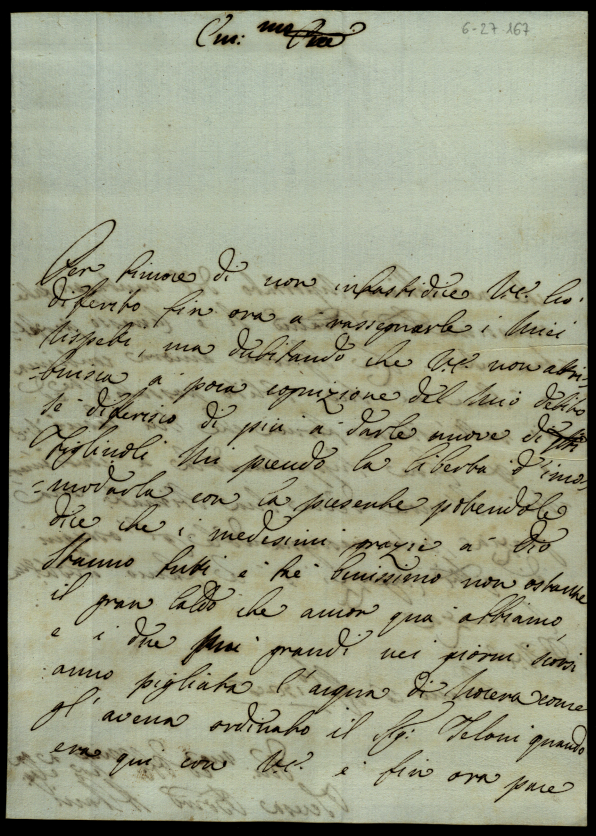 6-27-167
Per timore di non infastidire V.E. hò
differito fin ora à rassegnarle i Miei
rispetti, ma dubitando che V.E. non attri=
=buisca à poca cognizione del Mio debito
se differisco di più à darle nuove di
Figliuoli Mi prendo la libertà d'inco=
=modarla con la presente potendole
dire che i medesimi grazie à Dio
stanno tutti e trè benissimo non ostante
il gran Caldo che ancor quà abbiamo,
e i due più grandi nei giorni scorsi
anno pigliata l'acqua di Nocera come
gl'aveva ordinato il Sig: Teloni quando
era qui con V.E. e fin ora pare